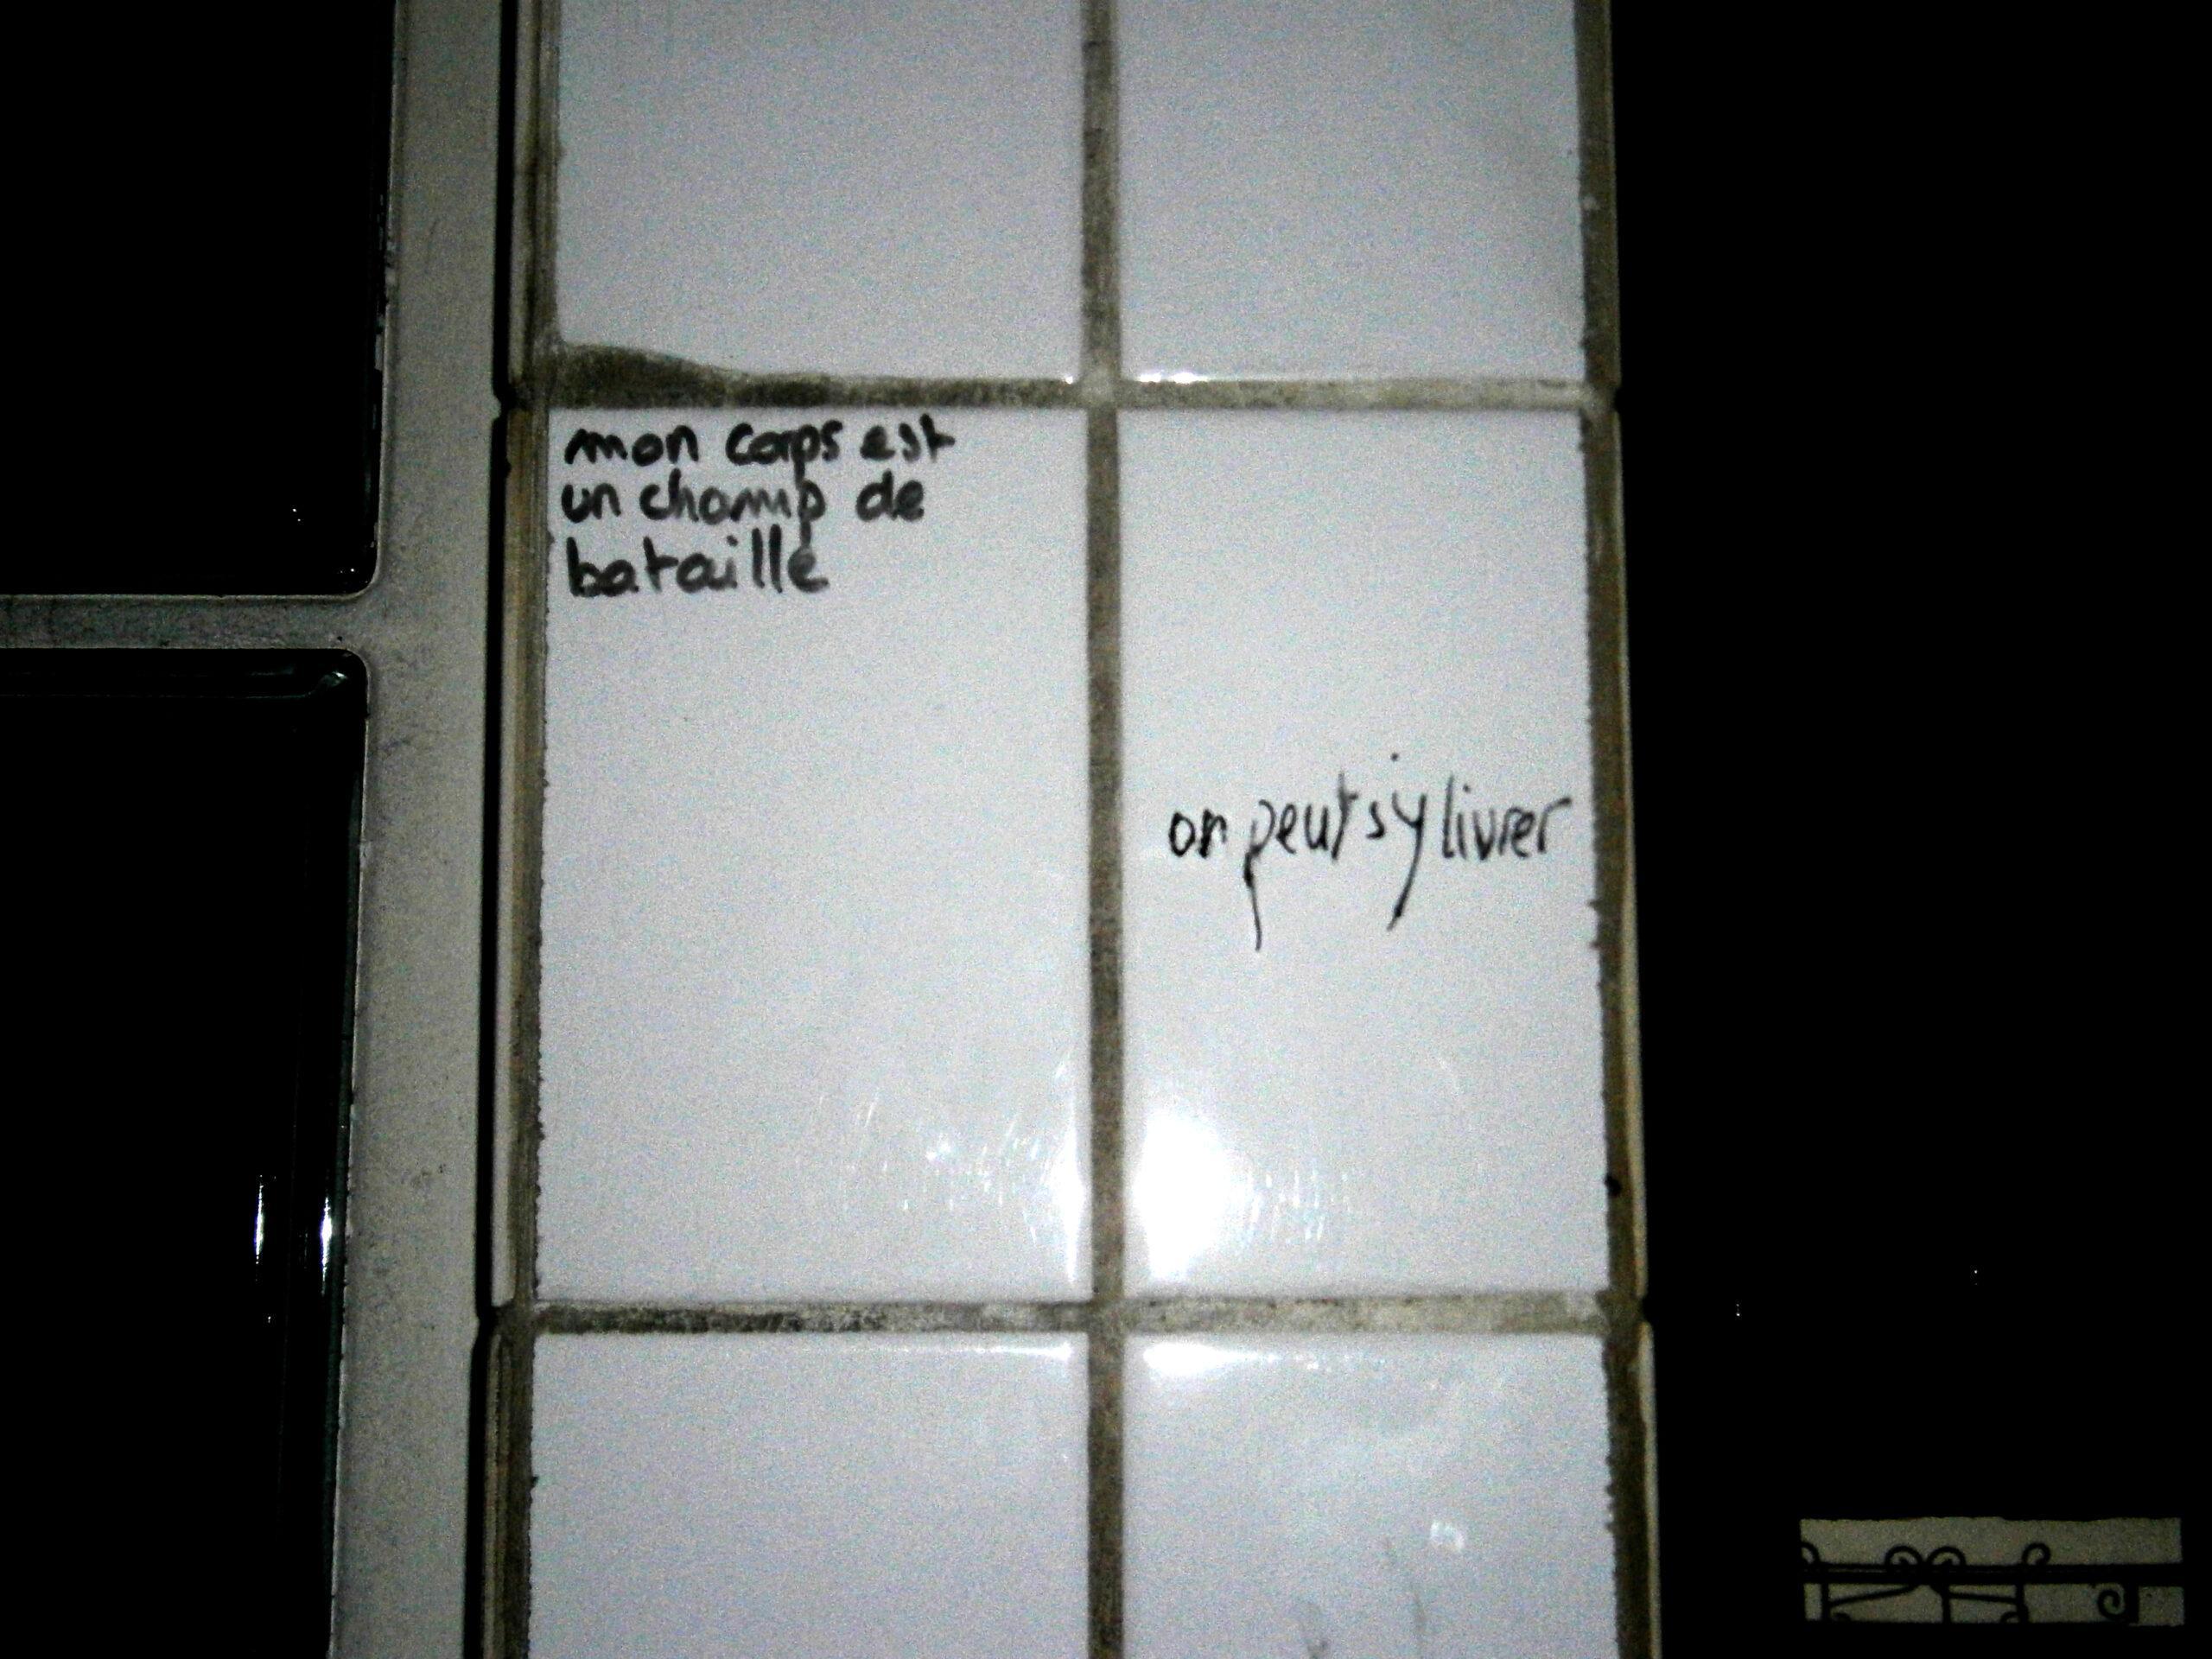 mon corps est
un champ de
bataille
on peut s'y livrer